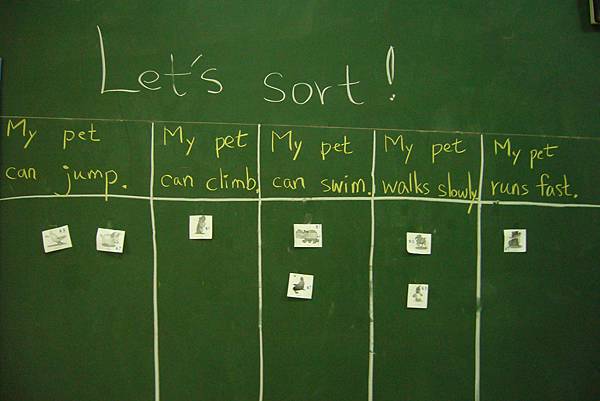 Let's sort!
My pet
can jump.
My pet
can climb.
My pet
can swim.
My pet
walks slowly
My pet
runs fast.